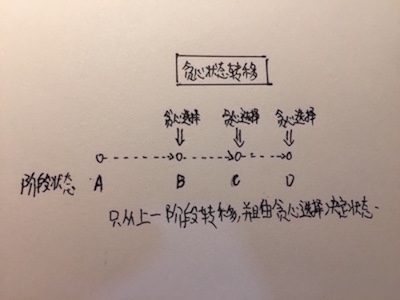 贪心状态转移
贪心选择 贪心选择 贪心选择
阶段状态 A B C D
只从上一阶段转移,并且由贪心选择决定状态.